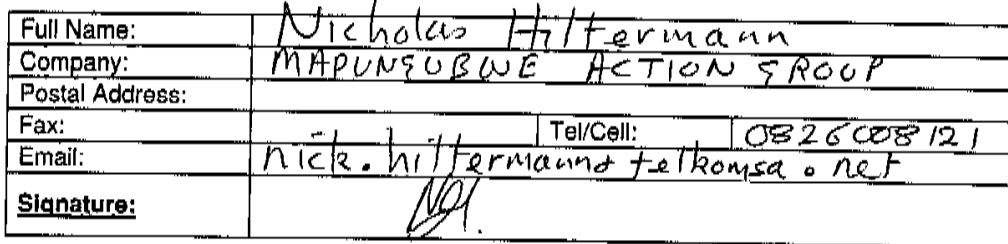 Full Name: Nicholas Hiltermann
Company: MAPUNGUBWE ACTION GROUP
Postal Address:
Fax: Tel/Cell: 0826008121
Email: nick.hiltermann@telkomsa.net
Signature: